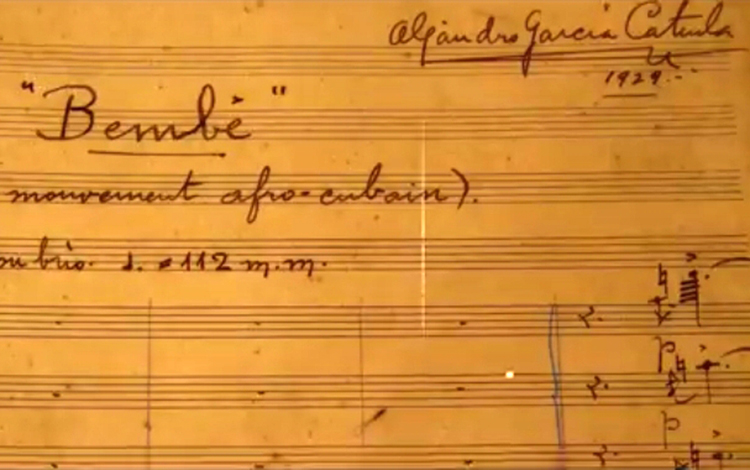 Alejandro García Caturla
1929.-
"Bembé"
mouvement afro-cubain).
brio. d. = 112 m.m.
p
p